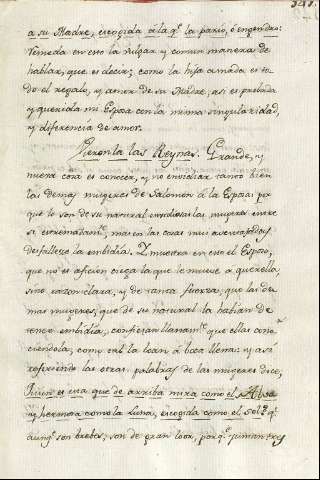 a su Madre, escogida á la q.e la pario, ó engendro:
remeda en esto la vulgar y comun manera de
hablar, que es decir; como la hija amada es to-
do el regalo, y amor de su Madre, asi es preciada
y querida mi Esposa con la misma singularidad,
y diferencia de amor.
Vieronla las Reynas. Grande, y
nueva cosa es conocer, y no envidiar tanto bien
las demas mugeres de Salomon á la Esposa: por
que lo son de su natural envidiosas las mugeres entre
si estremadam.te, mas en las cosas muy aventajadas
desfallece la embidia. Y muestra en esto el Esposo,
que no es aficion ciega la que le mueve a quererla,
sino razon clara, y de tanta fuerza, que las de-
mas mugeres, que de su natural la habian de
tener embidia, confiesan llanam.te que ellas cono-
ciendola, como tal la loan á boca llena: y asi
refiriendo las otras palabras de las mugeres dice,
Quien es esta que de arriba mira como el Alva
y hermosa como la Luna, escogida como el sol? q.e
aunq.e son brebes, son de gran loor, porq.e juntan tres